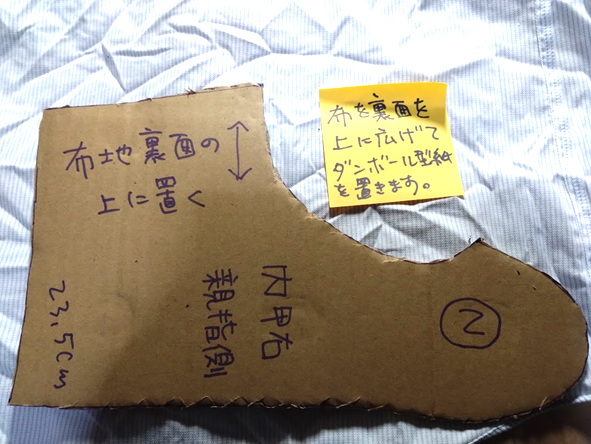 布地裏面の
上に置く
布を裏面を
上に広げて
ダンボール型紙
を置きます。
内甲右
親指側
23.5cm
2